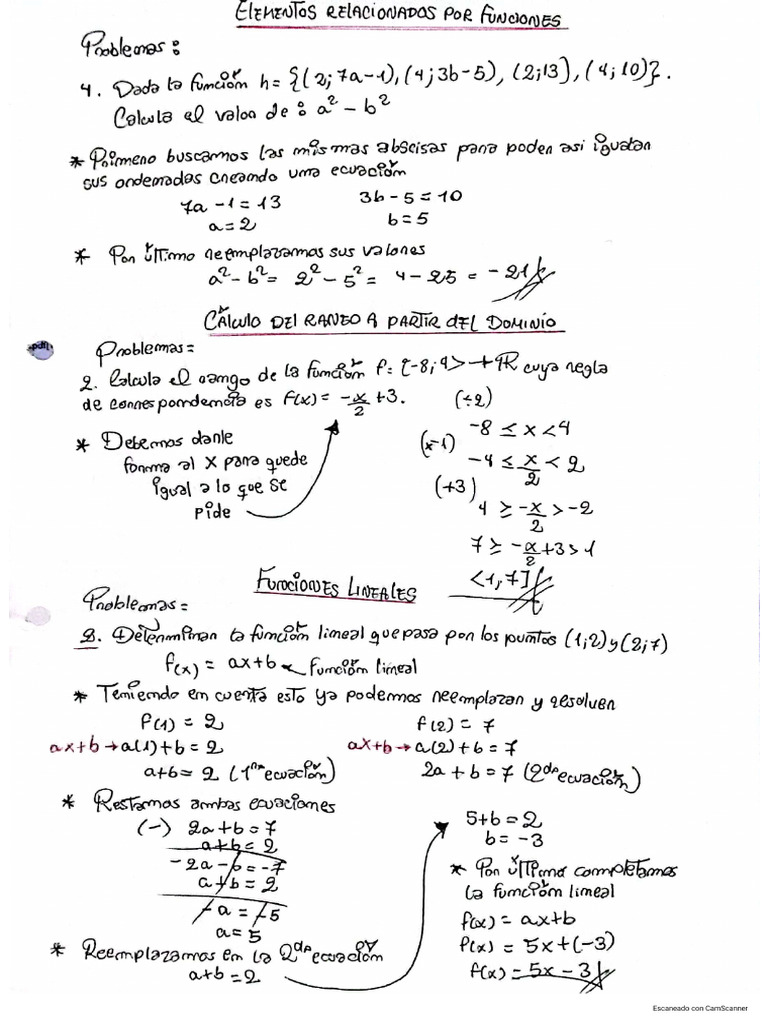 ELEMENTOS RELACIONADOS POR FUNCIONES
Problemas:
4. Dada la función h = {(2; 7a-1), (4; 3b-5), (2;13), (4;10)}.
Calcula el valor de: a² - b²
* Primero buscamos las mismas abscisas para poder asi igualar
sus ordenadas creando una ecuación
7a - 1 = 13
3b - 5 = 10
a = 2
b = 5
* Por último reemplazamos sus valores
a² - b² = 2² - 5² = 4 - 25 = -21
CÁLCULO DEL RANGO A PARTIR DEL DOMINIO
pdf
Problemas:
2. Calcula el rango de la función f: [-8; 4> → R cuya regla
de correspondencia es f(x) = -x/2 + 3.
* Debemos darle
forma al x para quede
igual a lo que se
pide
(÷2)
-8 ≤ x < 4
(x-1)
-4 ≤ x/2 < 2
(+3)
4 ≥ -x/2 > -2
7 ≥ -x/2 + 3 > 1
<1, 7]
FUNCIONES LINEALES
Problemas:
8. Determinar la función lineal que pasa por los puntos (1;2) y (2;7)
f(x) = ax+b ← Función lineal
* Teniendo en cuenta esto ya podemos reemplazar y resolver
f(1) = 2
f(2) = 7
ax+b → a(1)+b = 2
ax+b → a(2)+b = 7
a+b = 2 (1ra ecuación)
2a + b = 7 (2da ecuación)
* Restamos ambas ecuaciones
(-) 2a+b = 7
a+b = 2
-2a - b = -7
a + b = 2
-a = -5
a = 5
* Reemplazamos en la 2da ecuación
a+b = 2
5+b = 2
b = -3
* Por último completamos
la función lineal
f(x) = ax+b
f(x) = 5x+(-3)
f(x) = 5x - 3
Escaneado con CamScanner